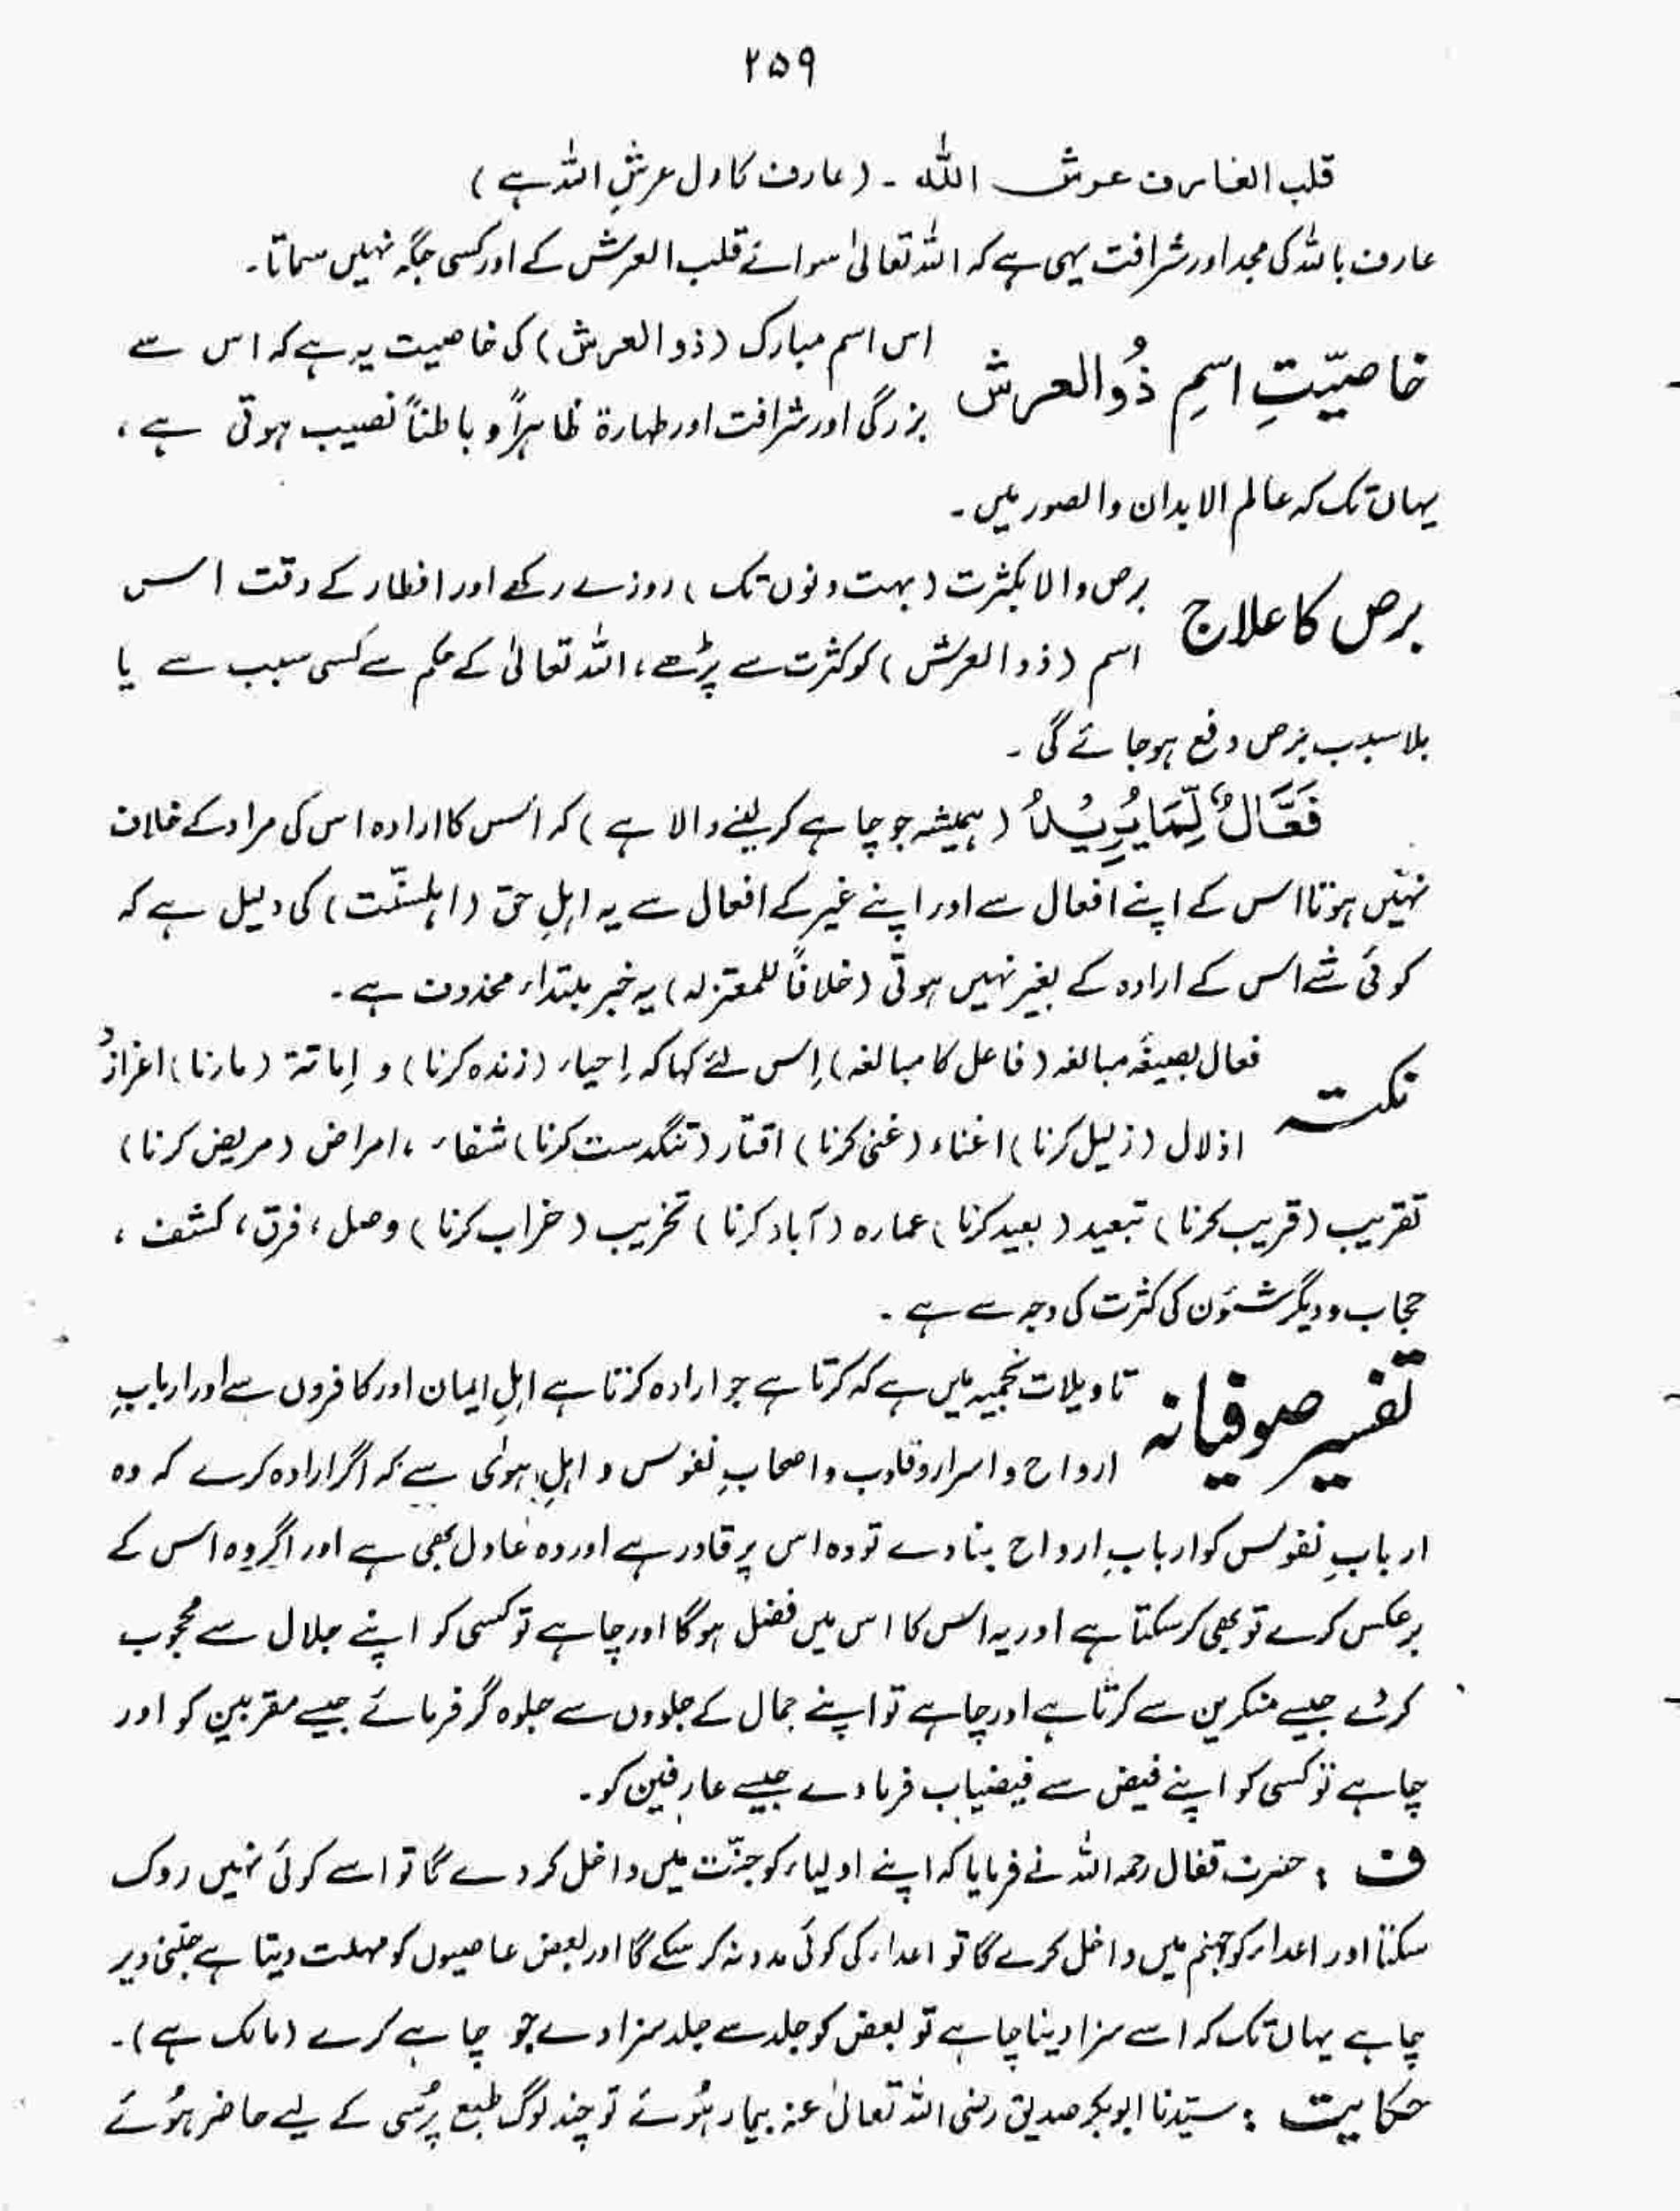 ۲۵۹
قلب العارف عرش اللہ ۔ (عارف کا دل عرشِ اللہ ہے)
عارف باللہ کی مجد اور شرافت یہی ہے کہ اللہ تعالیٰ سوائے قلب العرش کے اور کسی جگہ نہیں سماتا۔
خاصیّتِ اسمِ ذُوالعرش اس اسم مبارک (ذو العرش) کی خاصیت یہ ہے کہ اس سے
بزرگی اور شرافت اور طہارۃ ظاہراً و باطناً نصیب ہوتی ہے،
یہاں تک کہ عالم الابدان والصور میں۔
برص کا علاج برص والا بکثرت (بہت دنوں تک) روزے رکھے اور افطار کے وقت اس
اسم (ذو العرش) کو کثرت سے پڑھے، اللہ تعالیٰ کے حکم سے کسی سبب سے یا
بلا سبب برص دفع ہوجائے گی ۔
فَعَّالٌ لِّمَا یُرِیْدُ (ہمیشہ جو چاہے کر لینے والا ہے) کہ اس کا ارادہ اس کی مراد کے خلاف
نہیں ہوتا اس کے اپنے افعال سے اور اپنے غیر کے افعال سے یہ اہلِ حق (اہلسنّت) کی دلیل ہے کہ
کوئی شے اس کے ارادہ کے بغیر نہیں ہوتی (خلافاً للمعتزلہ) یہ خبر مبتداء محذوف ہے۔
نکتہ فعال بصیغۂ مبالغہ (فاعل کا مبالغہ) اِس لئے کہا کہ اِحیاء (زندہ کرنا) و اِماتۃ (مارنا) اعزاز و
اذلال (ذلیل کرنا) اغناء (غنی کرنا) اقتار (تنگدست کرنا) شفاء، امراض (مریض کرنا)
تقریب (قریب کرنا) تبعید (بعید کرنا) عمارہ (آباد کرنا) تخریب (خراب کرنا) وصل، فرق، کشف،
حجاب و دیگر شئون کی کثرت کی وجہ سے ہے ۔
تفسیر صوفیانہ تاویلات نجمیہ میں ہے کہ کرتا ہے جو ارادہ کرتا ہے اہلِ ایمان اور کافروں سے اور اربابِ
ارواح و اسرار و قلوب و اصحابِ نفوس و اہلِ ہوٰی سے کہ اگر ارادہ کرے کہ وہ
اربابِ نفوس کو اربابِ ارواح بنا دے تو وہ اس پر قادر ہے اور وہ عادل بھی ہے اور اگر وہ اس کے
برعکس کرے تو بھی کرسکتا ہے اور یہ اس کا اس میں فضل ہوگا اور چاہے تو کسی کو اپنے جلال سے محجوب
کرے جیسے منکرین سے کرتا ہے اور چاہے تو اپنے جمال کے جلووں سے جلوہ گر فرمائے جیسے مقربین کو اور
چاہے تو کسی کو اپنے فیض سے فیضیاب فرمادے جیسے عارفین کو۔
ف : حضرت قفال رحمہ اللہ نے فرمایا کہ اپنے اولیاء کو جنّت میں داخل کر دے گا تو اسے کوئی نہیں روک
سکتا اور اعداء کو جہنم میں داخل کرے گا تو اعداء کی کوئی مدد نہ کر سکے گا اور بعض عاصیوں کو مہلت دیتا ہے جتنی دیر
چاہے یہاں تک کہ اسے سزا دینا چاہے تو بعض کو جلد سے جلد سزا دے جو چاہے کرے (مالک ہے)۔
حکایت : سیّدنا ابوبکر صدیق رضی اللہ تعالیٰ عنہ بیمار ہُوئے تو چند لوگ طبع پُرسی کے لیے حاضر ہُوئے